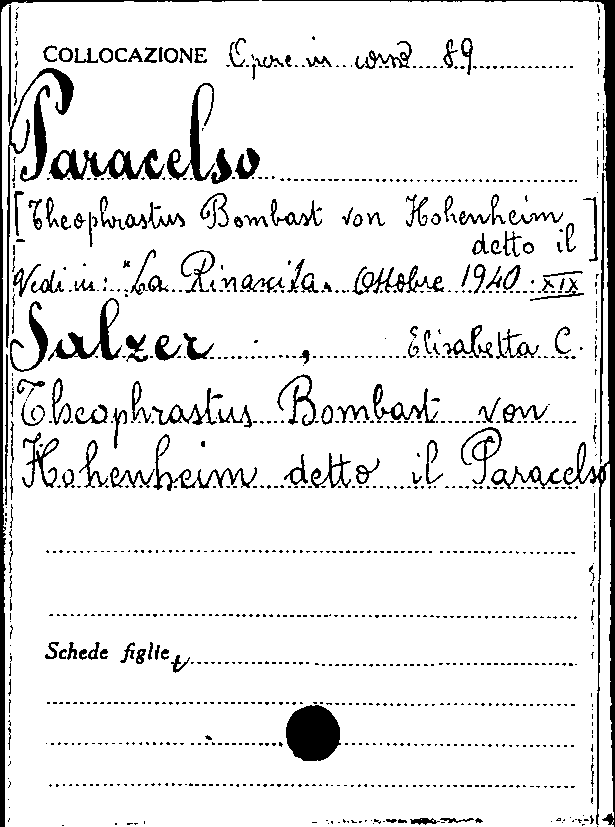 COLLOCAZIONE Opere in corso 89
Paracelso
[Theophrastus Bombast von Hohenheim
detto il]
Vedi in: "La Rinascita. Ottobre 1940. XIX
Salzer , Elisabetta C.
Theophrastus Bombast von
Hohenheim detto il Paracelso
Schede figlie